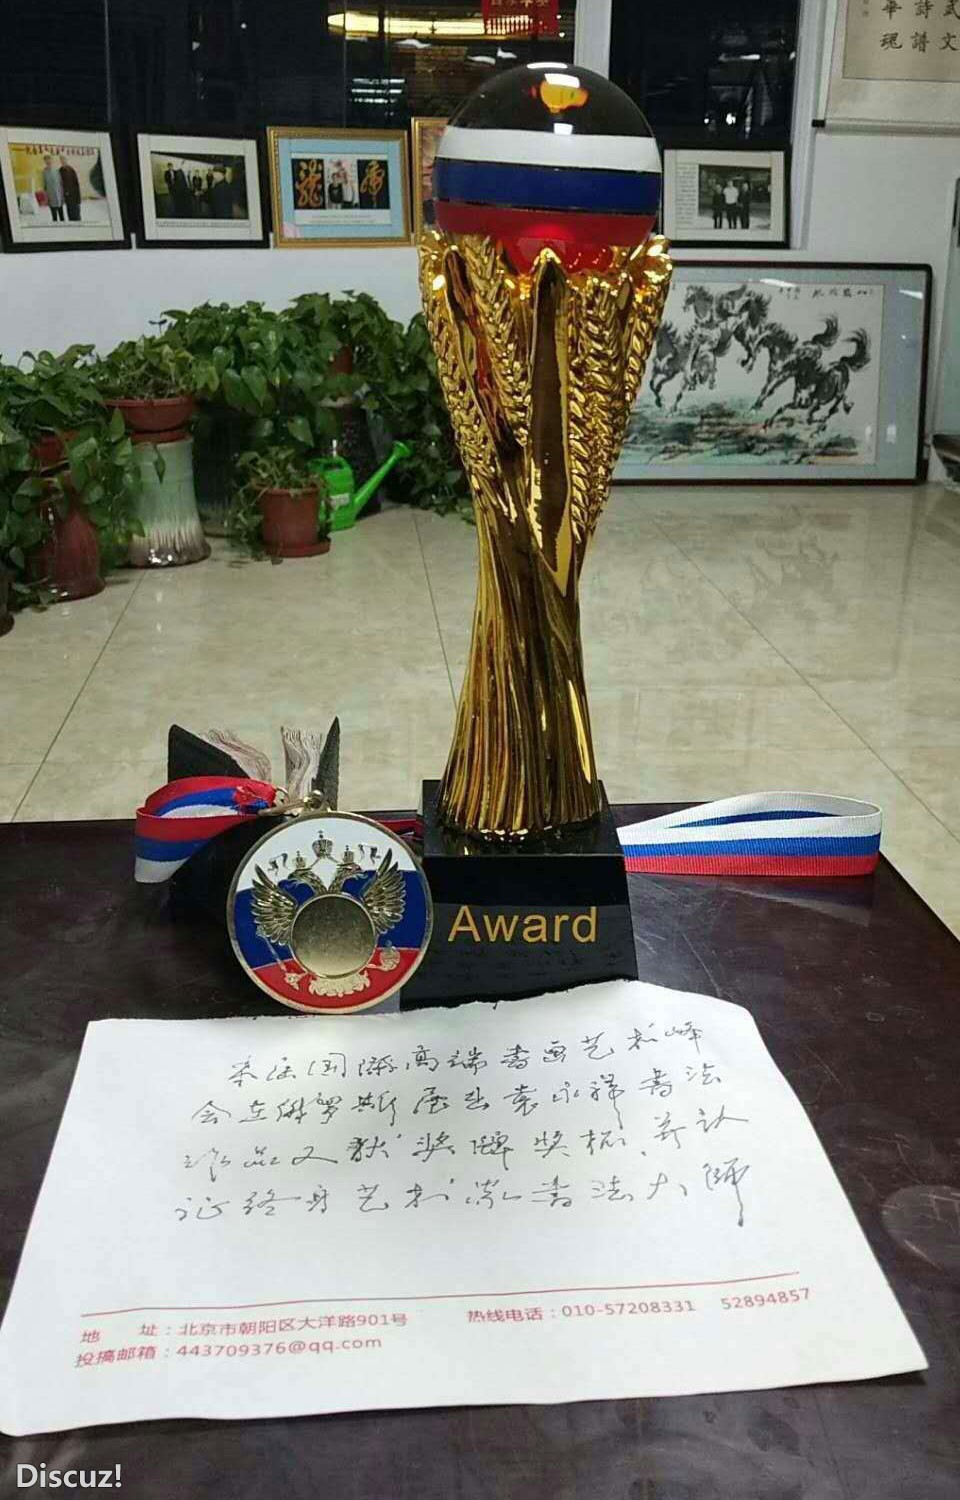 華 詩 武
魂 譜 文
龍 虎
Award
国际高端书画艺术峰
会在俄罗斯展出袁永祥书法
作品又获奖牌奖杯，并认
证终身艺术 书法大师
地 址：北京市朝阳区大洋路901号 热线电话：010-57208331 52894857
投搞邮箱：443709376@qq.com
Discuz!